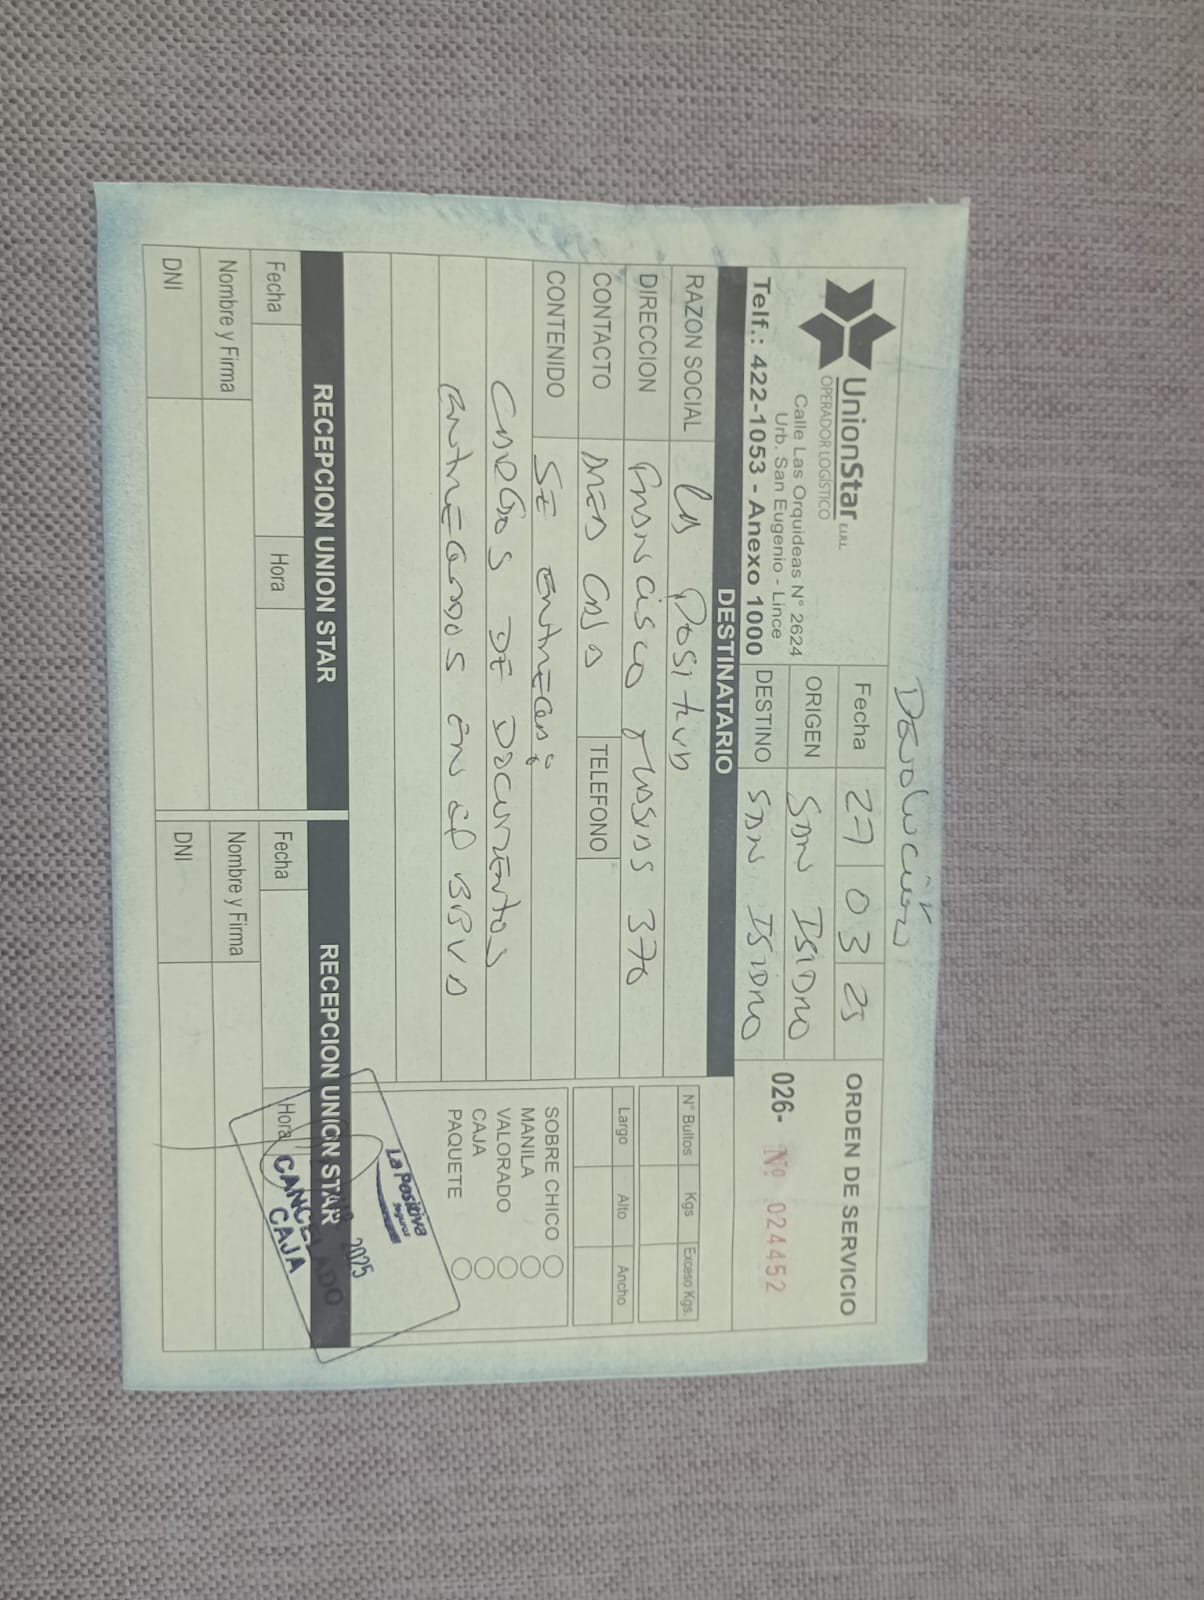 Devolución
UnionStar E.I.R.L.
OPERADOR LOGÍSTICO
Calle Las Orquideas N° 2624
Urb. San Eugenio - Lince
Telf.: 422-1053 - Anexo 1000
Fecha 27 03 25
ORIGEN SAN ISIDRO
DESTINO SAN ISIDRO
ORDEN DE SERVICIO
026- N° 024452
DESTINATARIO
RAZON SOCIAL La Positiva
DIRECCION Francisco Masias 370
CONTACTO AREA CAJA TELEFONO
CONTENIDO SE entrega:
CARGOS DE DOCUMENTOS
entregados en el BBVA
N° Bultos Kgs Exceso Kgs.
Largo Alto Ancho
SOBRE CHICO
MANILA
VALORADO
CAJA
PAQUETE
RECEPCION UNION STAR
Fecha Hora
Nombre y Firma
DNI
RECEPCION UNION STAR
Fecha Hora
Nombre y Firma
DNI
La Positiva
Seguros
2025
CANCELADO
CAJA